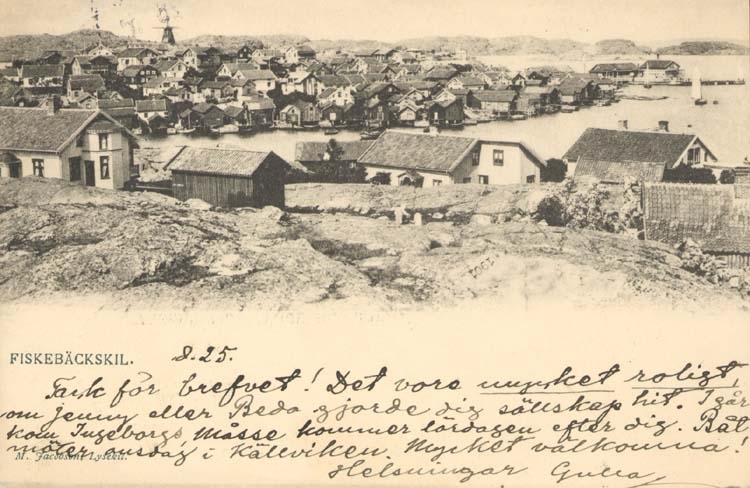 FISKEBÄCKSKIL.
8.25.
Tack för brefvet! Det vore mycket roligt,
om Jenny eller Beda gjorde dig sällskap hit. I går
kom Ingeborgs, Måsse kommer lördagen efter dig. Båt
möter onsdag i Källviken. Mycket välkomna!
M. Jacobson, Lysekil.
Helsningar Gulla